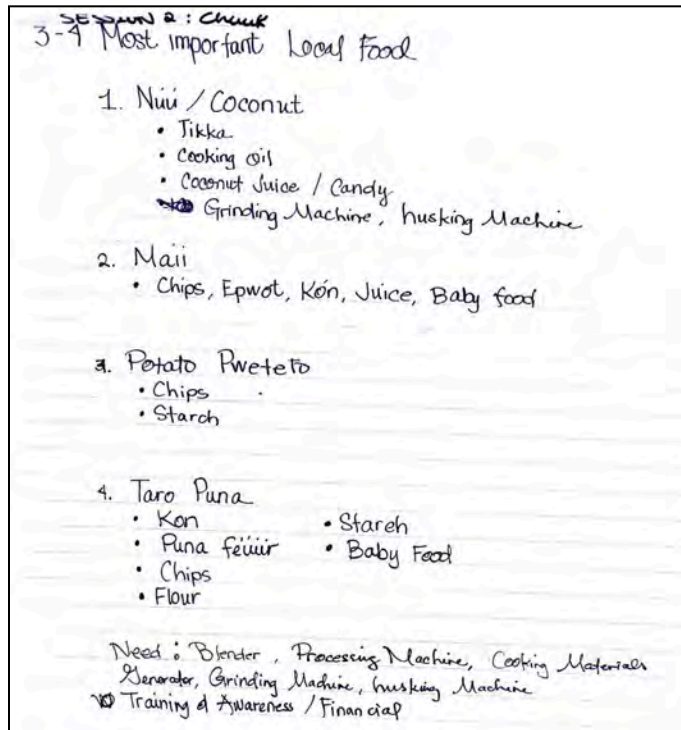 SESSION 2 : Chuuk
3-4 Most important Local Food
1. Núú / Coconut
• Tikka
• Cooking Oil
• Coconut Juice / Candy
Grinding Machine, husking Machine
2. Maii
• Chips, Epwot, Kón, Juice, Baby food
3. Potato Pweteto
• Chips
• Starch
4. Taro Puna
• Kon
• Puna féúúr
• Chips
• Flour
• Starch
• Baby Food
Need : Blender, Processing Machine, Cooking Materials
Generator, Grinding Machine, husking Machine
Training & Awareness / Financial